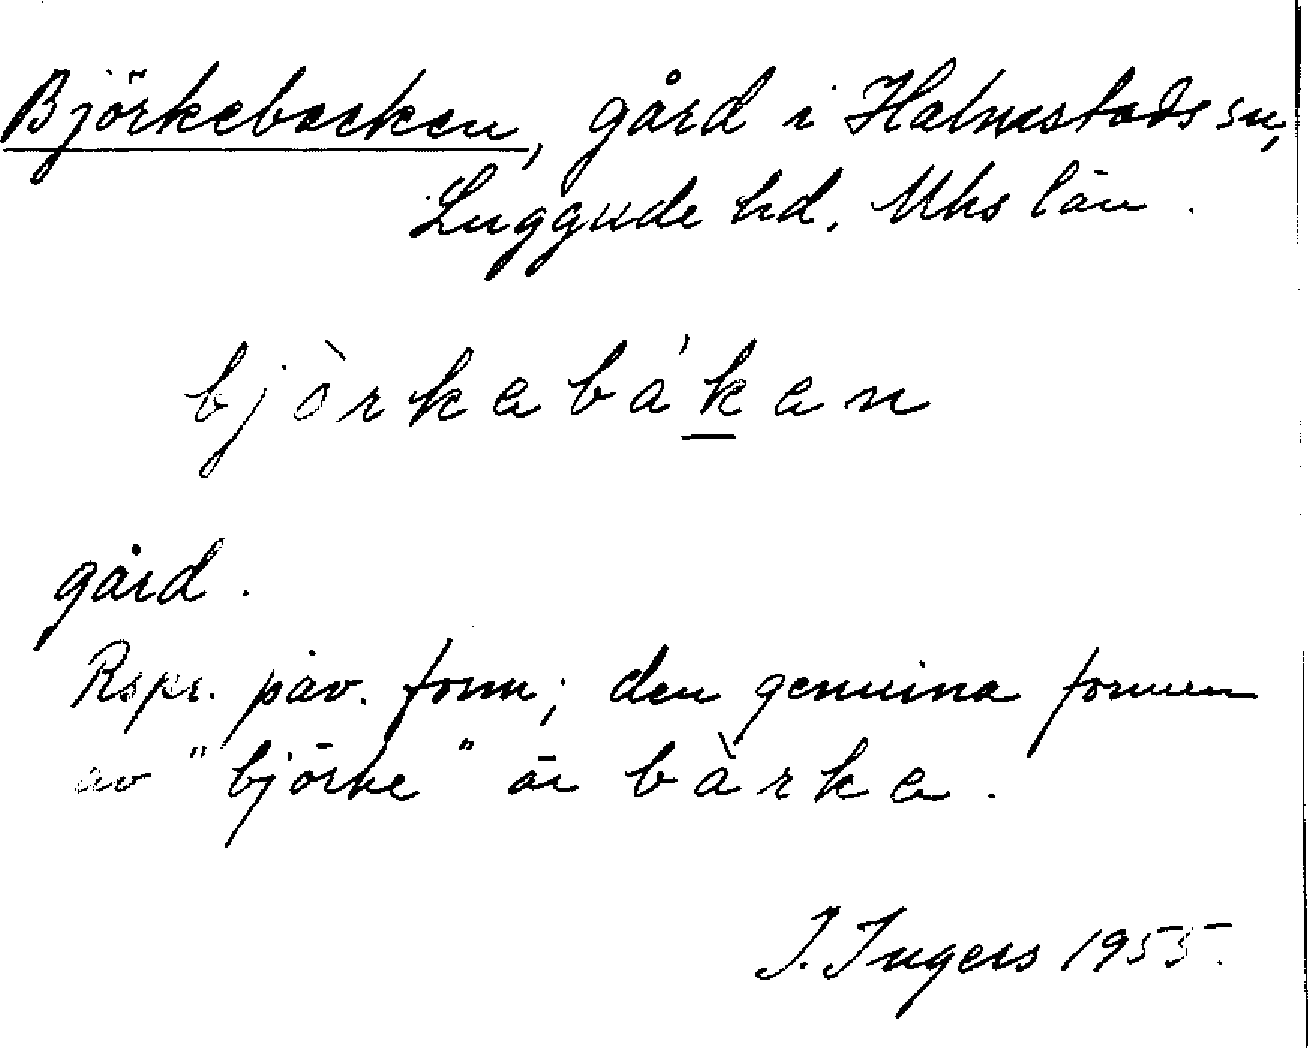 Björkebacken, gård i Halmstads sn,
Luggude hd. Mhs län.
bjòrkebák̲en
gård.
Rspr. påv. form; den genuina formen
av "björke" är bàrke.
I. Ingers 1955.